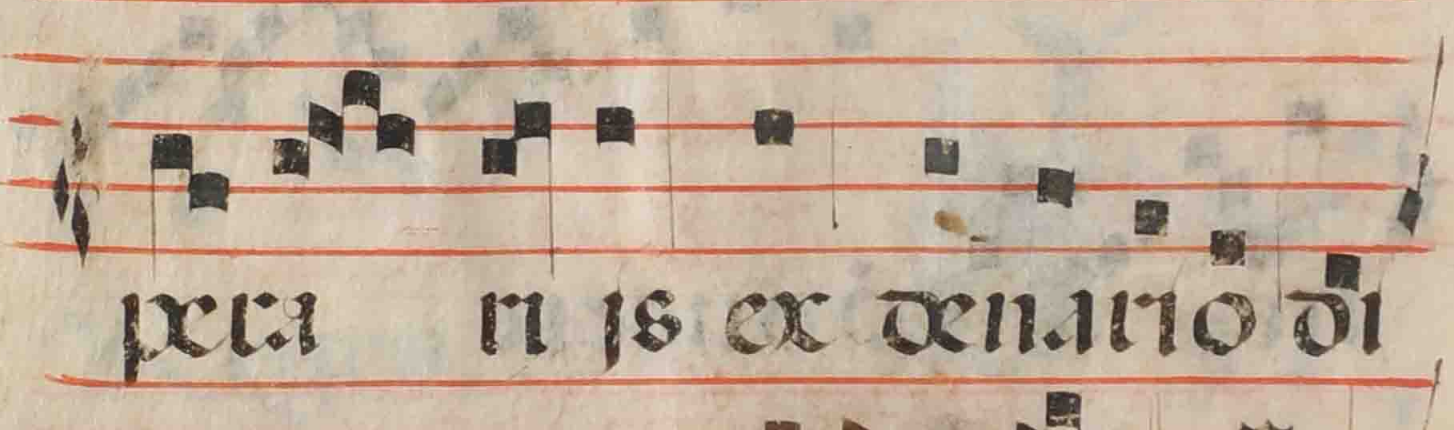 pera ri js ex denario di